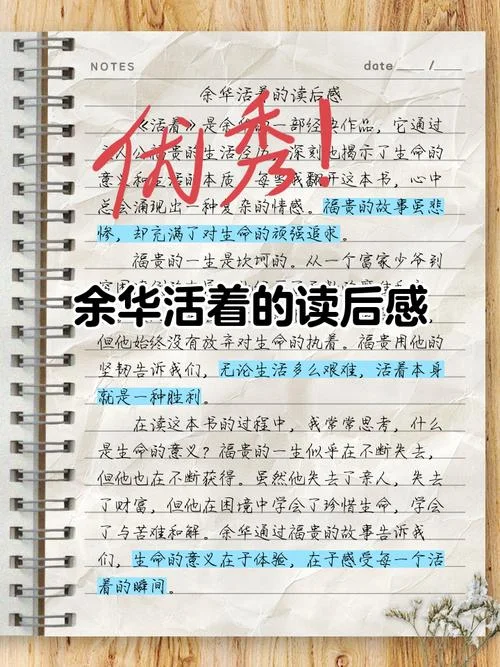 NOTES
date / 
余华活着的读后感
《活着》是余华的一部经典作品，它通过
主人公福贵的生活经历，深刻地揭示了生命的
意义和生活的本质。每当我翻开这本书，心中
总会涌现出一种复杂的情感。福贵的故事虽悲
惨，却充满了对生命的顽强追求。
优秀！
福贵的一生是坎坷的。从一个富家少爷到
余华活着的读后感
但他始终没有放弃对生命的执着。福贵用他的
坚韧告诉我们，无论生活多么艰难，活着本身
就是一种胜利。
在读这本书的过程中，我常常思考，什么
是生命的意义？福贵的一生似乎在不断失去，
但他也在不断获得。虽然他失去了亲人，失去
了财富，但他在困境中学会了珍惜生命，学会
了与苦难和解。余华通过福贵的故事告诉我
们，生命的意义在于体验，在于感受每一个活
着的瞬间。